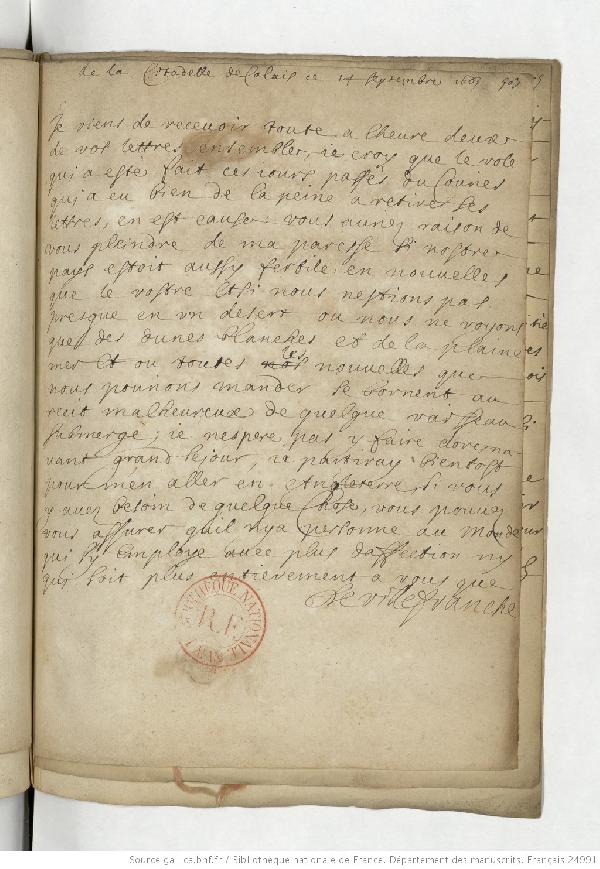 de la Citadelle de Calais ce 14 septembre 1663
Je viens de recevoir toute a lheure deux
de vos lettres ensemble, ie croy que le vole
qui a este fait ces iours passés du
qui a eu bien de la peine a retirer ses
lettres, en est cause vous auriez raison de
vous pleindre de ma paresse si nostre
pays estoit aussy fertile en nouvelles
que le vostre Et si nous nestions pas
presque en un desert ou nous ne voyons
que des dunes blanches et de la plaine
mer Et ou toutes les nouvelles que
nous pouuons mander se bornent au
recit malheureux de quelque vaisseau
submergé; ie nespere pas y faire dorena
uant grand seiour, ie partiray bientost
pour men aller en Angleterre, si vous
y avez besoin de quelque chose, vous pouvez
vous assurer quil nya personne au monde
qui sy employe avec plus daffection ny
qui soit plus entierement a vous que
De villefranche
BIBLIOTHEQUE NATIONALE
R.F.
Source gallica.bnf.fr / Bibliothèque nationale de France. Département des manuscrits. Français 24991